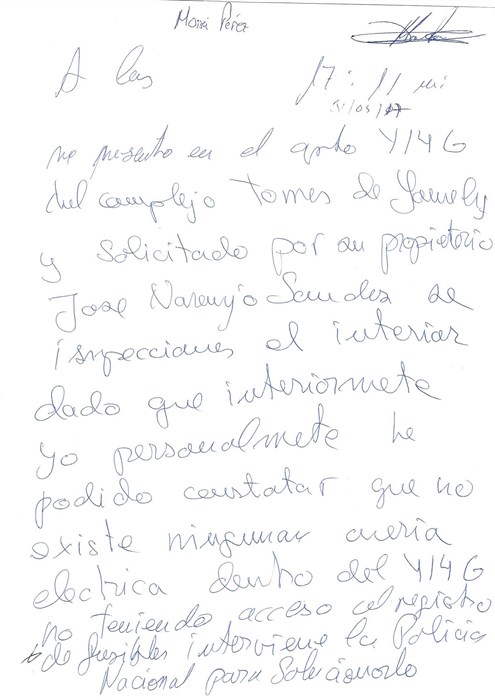 Moisi Pérez
A las 17:11 mi
31/05/07
me presento en el apto Y14G
del complejo Torres de Yamely
y solicitado por su propietario
Jose Naranjo Sandez se
inspecciones el interior
dado que interiormete
yo personalmete he
podido constatar que no
existe ningunar averia
electrica dentro del Y14G
no teniendo acceso al registro
de fusibles interviene la Policia
Nacional para Solucionarlo